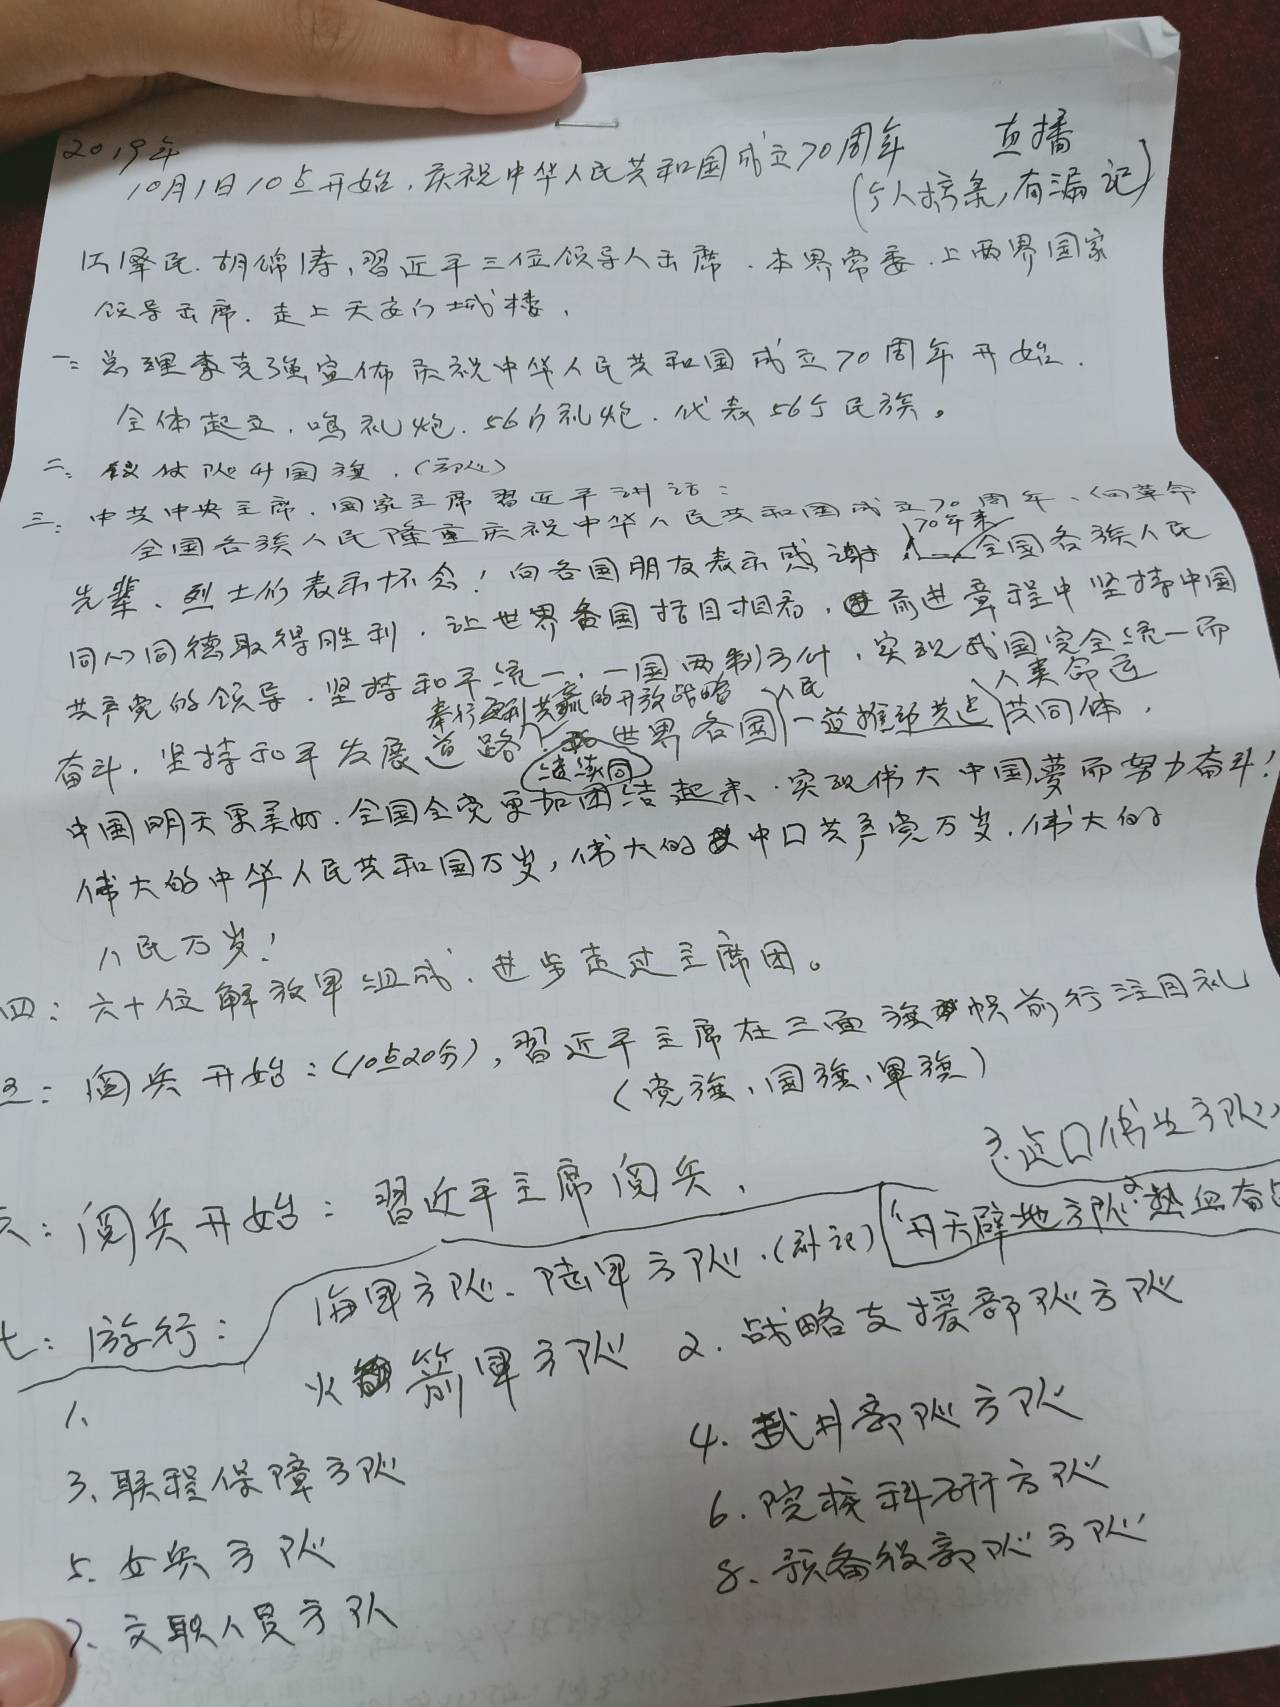 2019年
10月1日10点开始,庆祝中华人民共和国成立70周年 直播
(个人摘条,有漏记)
江泽民.胡锦涛,習近平三位领导人出席.本界常委.上两界国家
领导出席.走上天安门城楼,
一:总理李克强宣佈庆祝中华人民共和国成立70周年开始.
全体起立,鳴礼炮.56门礼炮.代表56个民族。
二:仪仗队升国旗.(部队)
三:中共中央主席.国家主席習近平讲话:
全国各族人民隆重庆祝中华人民共和国成立70周年、(向革命
先辈、烈士们表示怀念!向各国朋友表示感谢 70年来 全国各族人民
同心同德取得胜利.让世界各国括目相看,前进章程中坚持中国
共产党的领导.坚持和平统一,一国两制方针,实现我国完全统一而
奋斗.坚持和平发展道路,奉行互利共赢的开放战略 继续同世界各国人民一道推动共建人类命运共同体,
中国明天更美好.全国全党更加团结起来.实现伟大中国夢而努力奋斗!
伟大的中华人民共和国万岁,伟大的中口共产党万岁.伟大的
人民万岁!
四:六十位解放軍组成.进步走过主席团。
五:阅兵开始:(10点20分),習近平主席在三面旗帜前行注目礼
(党旗、国旗、軍旗)
六:阅兵开始:習近平主席阅兵,
3.
“开天辟地方队 2.热血奋
七:游行:
海軍方队、陆軍方队.(补记)
1、
火箭軍方队 2.战略支援部队方队
3、联程保障方队 4.武升部队方队
5.女兵方队 6.院校科研方队
7、文职人员方队 8.预备役部队方队